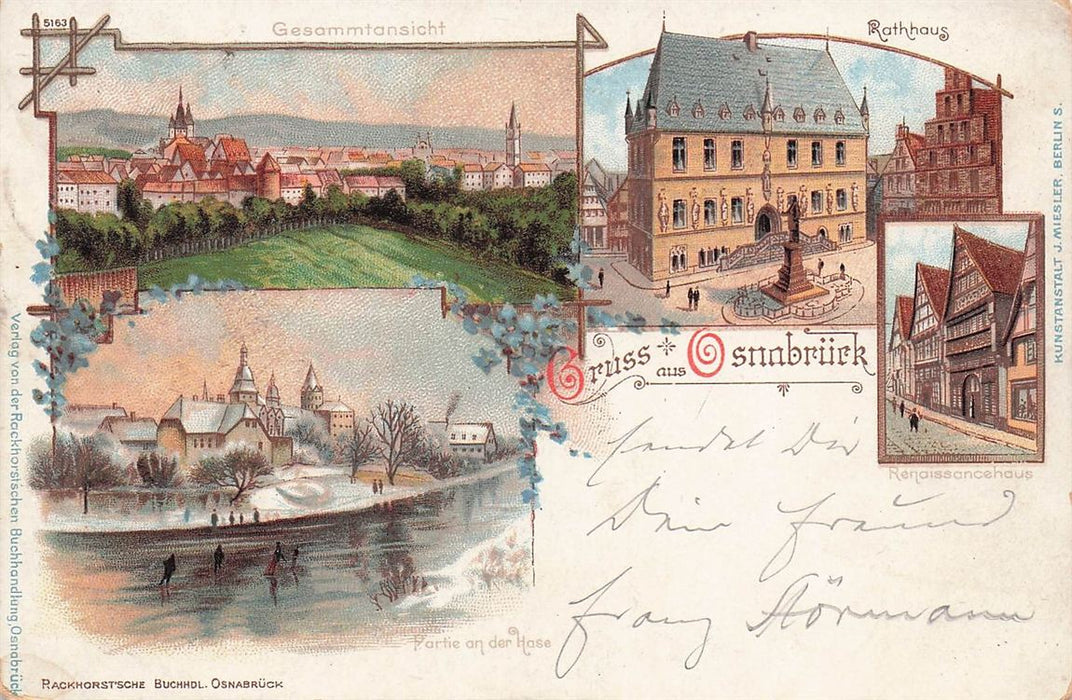 5163
Gesammtansicht
Rathhaus
KUNSTANSTALT J. MIESLER, BERLIN S.
Gruss aus Osnabrück
Renaissancehaus
sendet Dir
Dein Freund
Franz Hörmann
Partie an der Hase
Verlag von der Rackhorstschen Buchhandlung, Osnabrück
RACKHORST'SCHE BUCHHDL. OSNABRÜCK